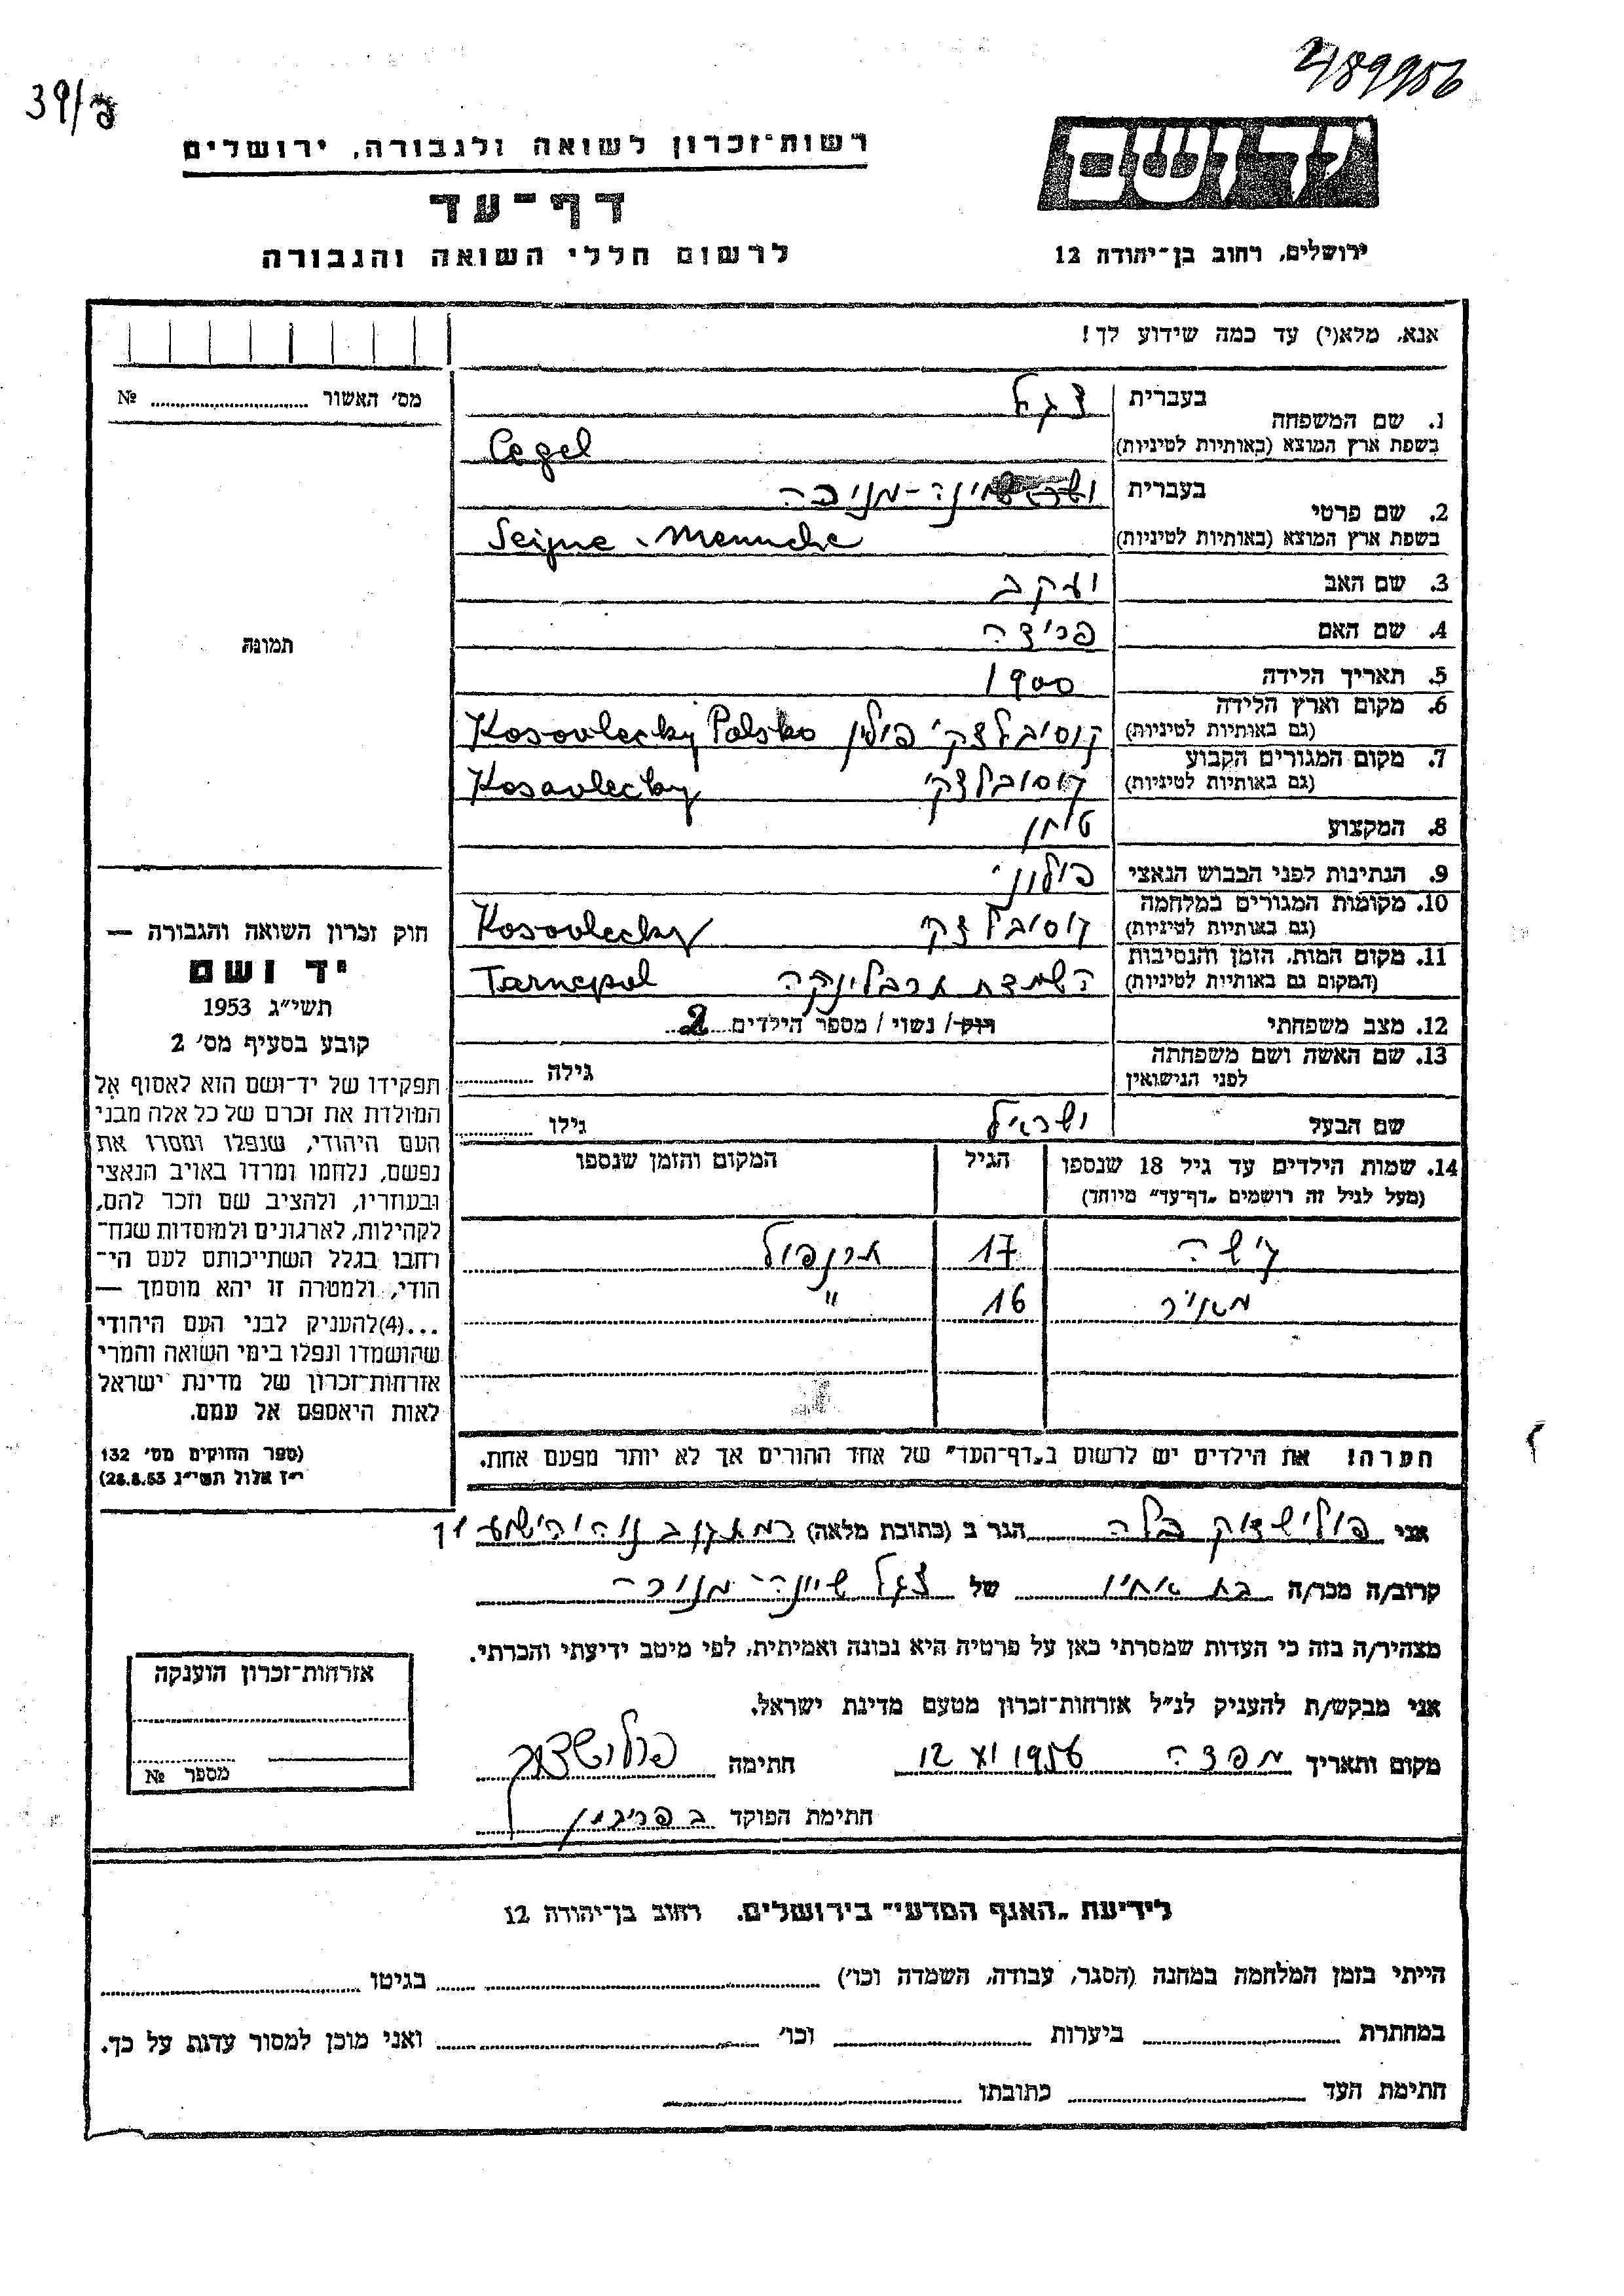 489956
39/פ
יד ושם
רשות-זכרון לשואה ולגבורה, ירושלים
דף-עד
לרשום חללי השואה והגבורה
ירושלים, רחוב בן-יהודה 12
אנא, מלא(י) עד כמה שידוע לך!
מס׳ האשור № 
1. שם המשפחה
בעברית צגל
בשפת ארץ המוצא (באותיות לטיניות) Cegel
2. שם פרטי
בעברית שיינה-מניכה
בשפת ארץ המוצא (באותיות לטיניות) Sejne - Menuche
3. שם האב יעקב
4. שם האם פריצה
5. תאריך הלידה 1900
6. מקום וארץ הלידה
(גם באותיות לטיניות) קוסובלצקי פולין Kosovlecky Polsko
7. מקום המגורים הקבוע
(גם באותיות לטיניות) קוסובלצקי Kosovlecky
8. המקצוע טוחן
9. הנתינות לפני הכבוש הנאצי פולוני
10. מקומות המגורים במלחמה
(גם באותיות לטיניות) קוסובלצקי Kosovlecky
11. מקום המות, הזמן והנסיבות
(המקום גם באותיות לטיניות) השמדת Tarnepol
12. מצב משפחתי רוק/ נשוי/ מספר הילדים 2
13. שם האשה ושם משפחתה
לפני הנישואין גילה
שם הבעל ישראל גילו
14. שמות הילדים עד גיל 18 שנספו
(מעל לגיל זה רושמים „דף-עד״ מיוחד)
הגיל
המקום והזמן שנספו
17
מאיר 16 "
הערה! את הילדים יש לרשום ב„דף-העד״ של אחד ההורים אך לא יותר מפעם אחת.
תמונה
חוק זכרון השואה והגבורה —
יד ושם
תשי״ג 1953
קובע בסעיף מס׳ 2
תפקידו של יד-ושם הוא לאסוף אל
המולדת את זכרם של כל אלה מבני
העם היהודי, שנפלו ומסרו את
נפשם, נלחמו ומרדו באויב הנאצי
ובעוזריו, ולהציב שם וזכר להם,
לקהילות, לארגונים ולמוסדות שנח-
רבו בגלל השתייכותם לעם הי-
הודי, ולמטרה זו יהא מוסמך —
...(4)להעניק לבני העם היהודי
שהושמדו ונפלו בימי השואה והמרי
אזרחות-זכרון של מדינת ישראל
לאות היאספם אל עמם.
(ספר החוקים מס׳ 132
י״ז אלול תשי״ג 28.8.53)
אני פולישצוק בלה הגר ב (כתובת מלאה)
קרוב/ה מכר/ה בת אחיו של צגל שיינה-מניכה
מצהיר/ה בזה כי העדות שמסרתי כאן על פרטיה היא נכונה ואמיתית, לפי מיטב ידיעתי והכרתי.
אני מבקש/ת להעניק לנ״ל אזרחות-זכרון מטעם מדינת ישראל.
מקום ותאריך 12 XI 1956 חתימה פולישצוק
חתימת הפוקד
אזרחות-זכרון הוענקה
מספר №
לידיעת „האגף המדעי״ בירושלים. רחוב בן-יהודה 12
הייתי בזמן המלחמה במחנה (הסגר, עבודה, השמדה וכו׳) בגיטו
במחתרת ביערות וכו׳ ואני מוכן למסור עדות על כך.
חתימת העד כתובתו